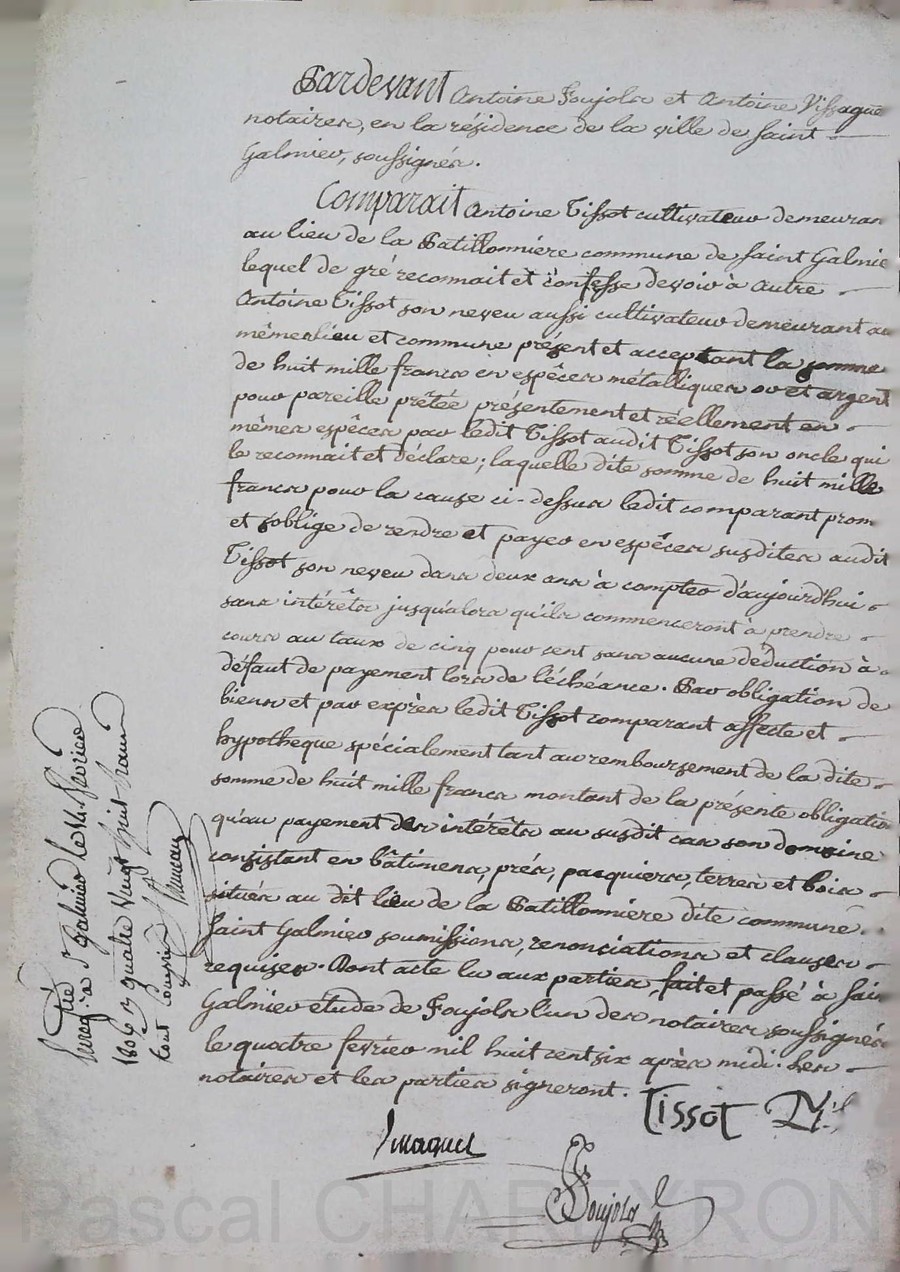 Pardevant Antoine Poujols et Antoine Vissague
notaires, en la résidence de la ville de Saint
Galmier, soussignés.
Comparait Antoine Tissot cultivateur demeuran
au lieu de la Batillonnière commune de Saint Galmie
lequel de gré reconnait et confesse devoir à autre
Antoine Tissot son neveu aussi cultivateur demeurant au
même lieu et commune présent et acceptant la somme
de huit mille francs en espêces métalliques or et argent
pour pareille prêtée présentement et réellement en
mêmes espêces par ledit Tissot audit Tissot son oncle qui
le reconnait et déclare; laquelle dite somme de huit mille
francs pour la cause ci-dessus ledit comparant prom
et s'oblige de rendre et payer en espêces susdites audit
Tissot son neveu dans deux ans à compter d'aujourdhui
sans intérêts jusqu'alors qu'ils commenceront à prendre
cours au taux de cinq pour cent sans aucune déduction à
défaut de payement lors de l'échéance. Par obligation de
biens et par exprès ledit Tissot comparant affecte et
hypothèque spécialement tant au remboursement de la dite
somme de huit mille francs montant de la présente obligatio
qu'au payement des intérêts au susdit cas son domaine
consistant en bâtimens, prés, pasquiers, terres et bois
situés au dit lieu de la Batillonnière dite commune
Saint Galmier soumissions, renonciations et clauses
requises. Dont acte lu aux parties, fait et passé à Sain
Galmier étude de Poujols l'un des notaires soussignés
le quatre fevrier mil huit cent six après midi. Les
notaires et les parties signeront.
Tissot
Poujols
Enregé à St Galmier le 14 fevrier
1806 quatre vingt huit francs
tout compris